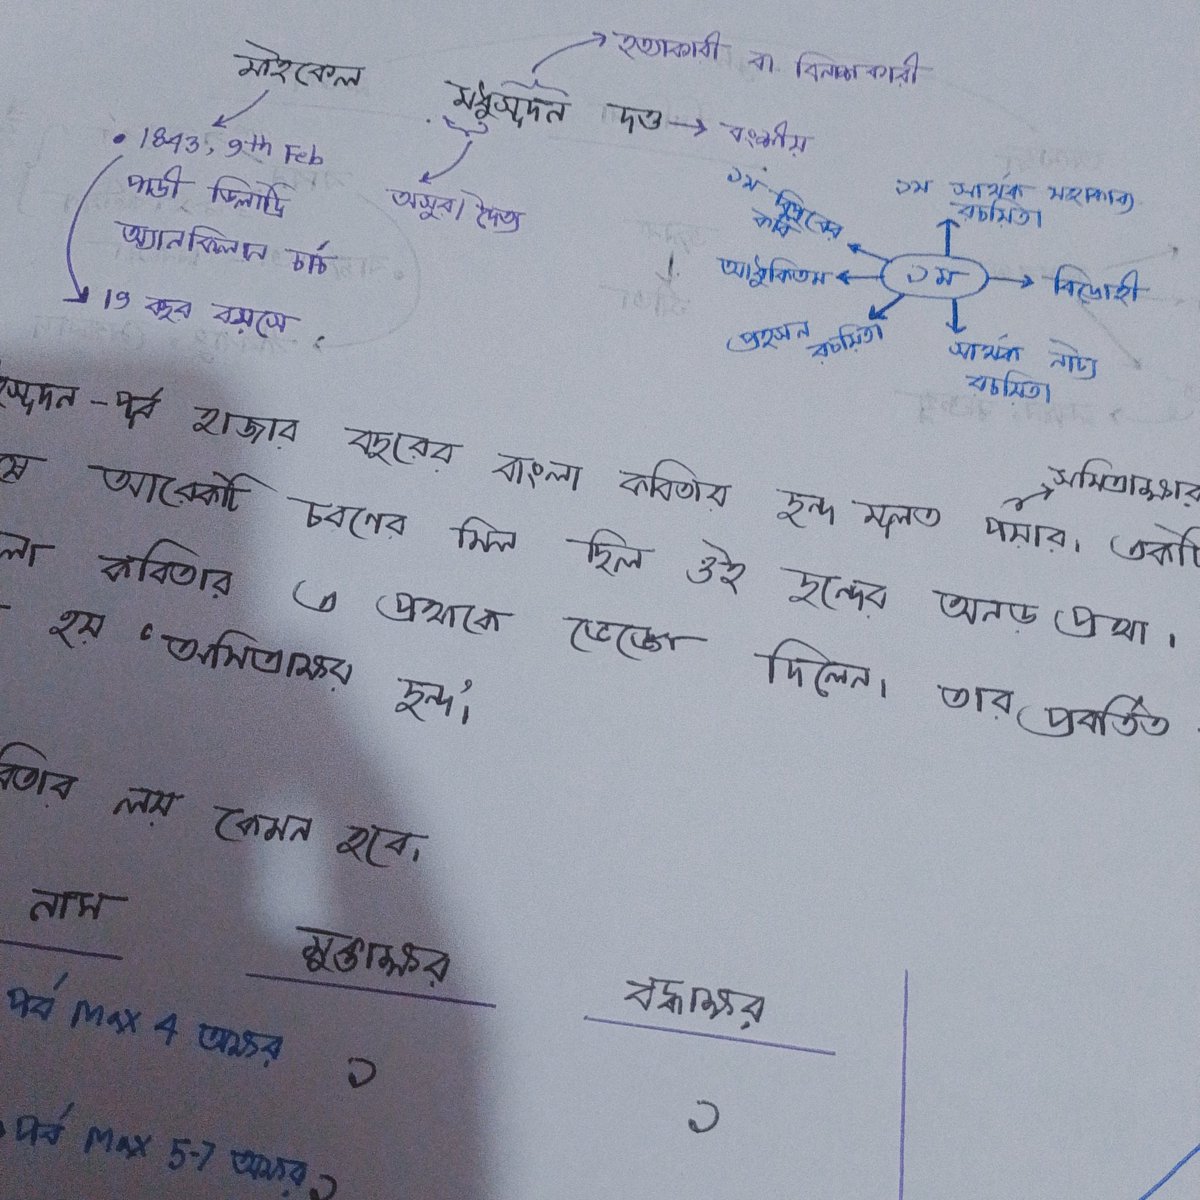 হত্যাকারী বা বিনাশকারী
মাইকেল মধুসূদন দত্ত → বংশীয়
• 1843, 9th Feb
পাদ্রী ডিলট্রি
অ্যানকিলান চার্চ
19 বছর বয়সে
অসুর/দৈত্য
১ম
১ম সার্থক মহাকাব্য
রচয়িতা
বিদ্রোহী
সার্থক নাট্য
রচয়িতা
প্রহসন
রচয়িতা
আধুনিকতম
১ম
কবি
সমিতাক্ষর
সূদন-পূর্ব হাজার বছরের বাংলা কবিতার ছন্দ মূলত পয়ার। একটি
আরেকটি চরণের মিল ছিল ওই ছন্দের অনড় প্রথা।
লা কবিতার এ প্রথাকে ভেঙ্গে দিলেন। তার প্রবর্তিত
হয় ‘অমিত্রাক্ষর ছন্দ’।
বিতার লয় কেমন হবে।
নাম মুক্তাক্ষর বদ্ধাক্ষর
পর্ব Max 4 অক্ষর ১ ১
পর্ব Max 5-7 অক্ষর ১